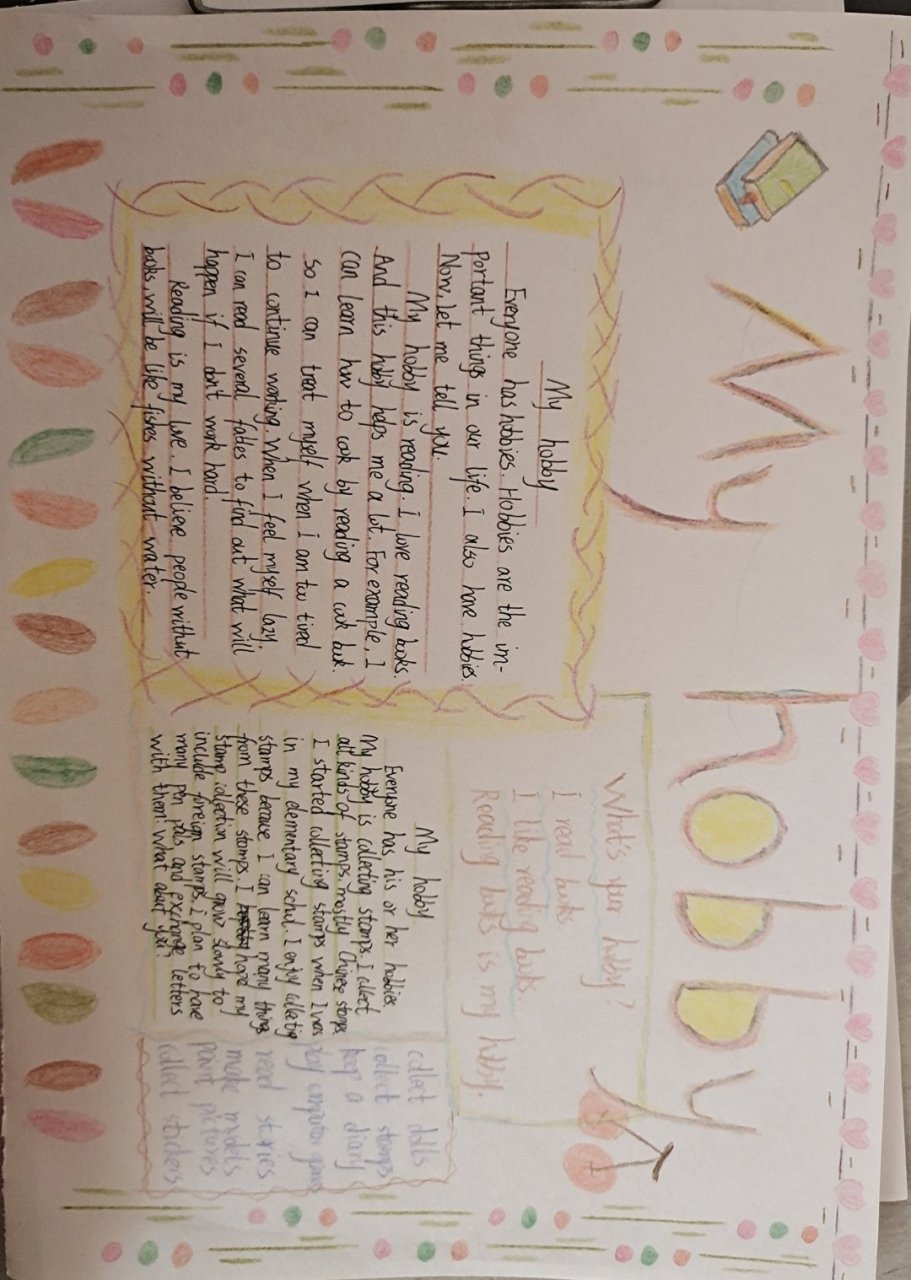 My hobby
My hobby
Everyone has hobbies. Hobbies are the im-
portant things in our life. I also have hobbies.
Now, let me tell you.
My hobby is reading. I love reading books.
And this hobby helps me a lot. For example, I
can learn how to cook by reading a cook book.
so I can treat myself when I am too tired
to continue working. When I feel myself lazy,
I can read several fables to find out what will
happen if I don't work hard.
Reading is my love. I believe people without
books, will be life fishes without water.
What's your hobby?
I read books
I like reading books.
Reading books is my hobby.
My hobby
Everyone has his or her hobbies.
My hobby is collecting stamps. I collect
all kinds of stamps, mostly Chinese stamps
I started collecting stamps when I was
in my elementary school. I enjoy collecting
stamps because I can learn many things
from these stamps. I hope my
stamp collection will grow slowly to
include foreign stamps. I plan to have
many pen pals and exchange letters
with them. What about you?
collect dolls
collect stamps
keep a diary
play computer games
read stories
make models
paint pictures
collect stickers